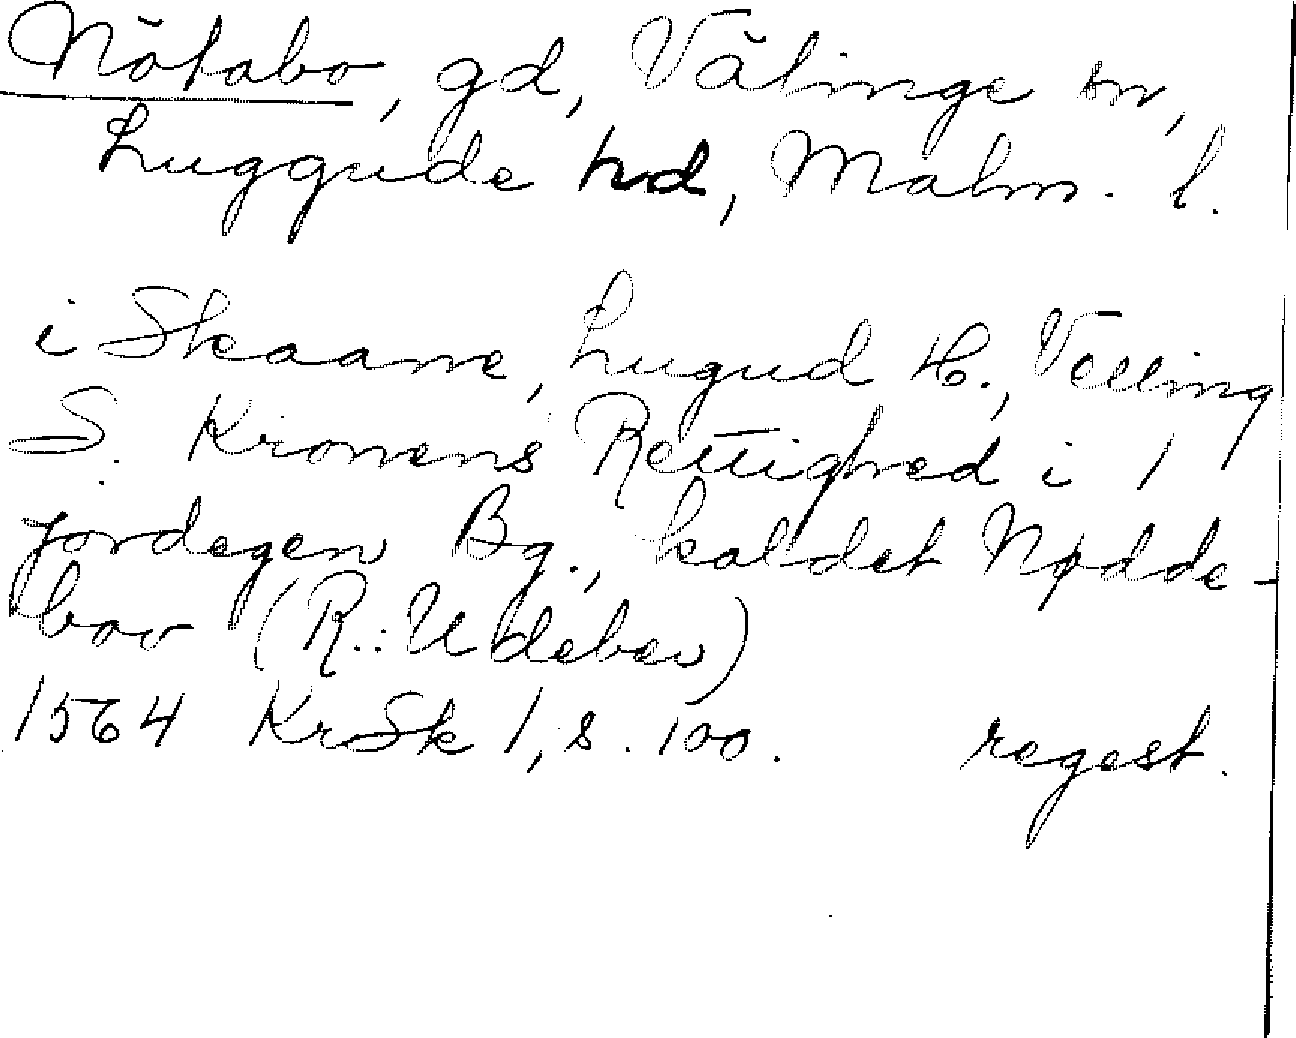 Nötabo, gd, Välinge sn,
Luggude hd, Malm. l.
i Skaane, Lugud H., Velling
S. Kronens Rettighed i 1
jordegen Bg., kaldet Nødde-
bov (R.: Udebov)
1564 KrSk 1, s. 100. regest.